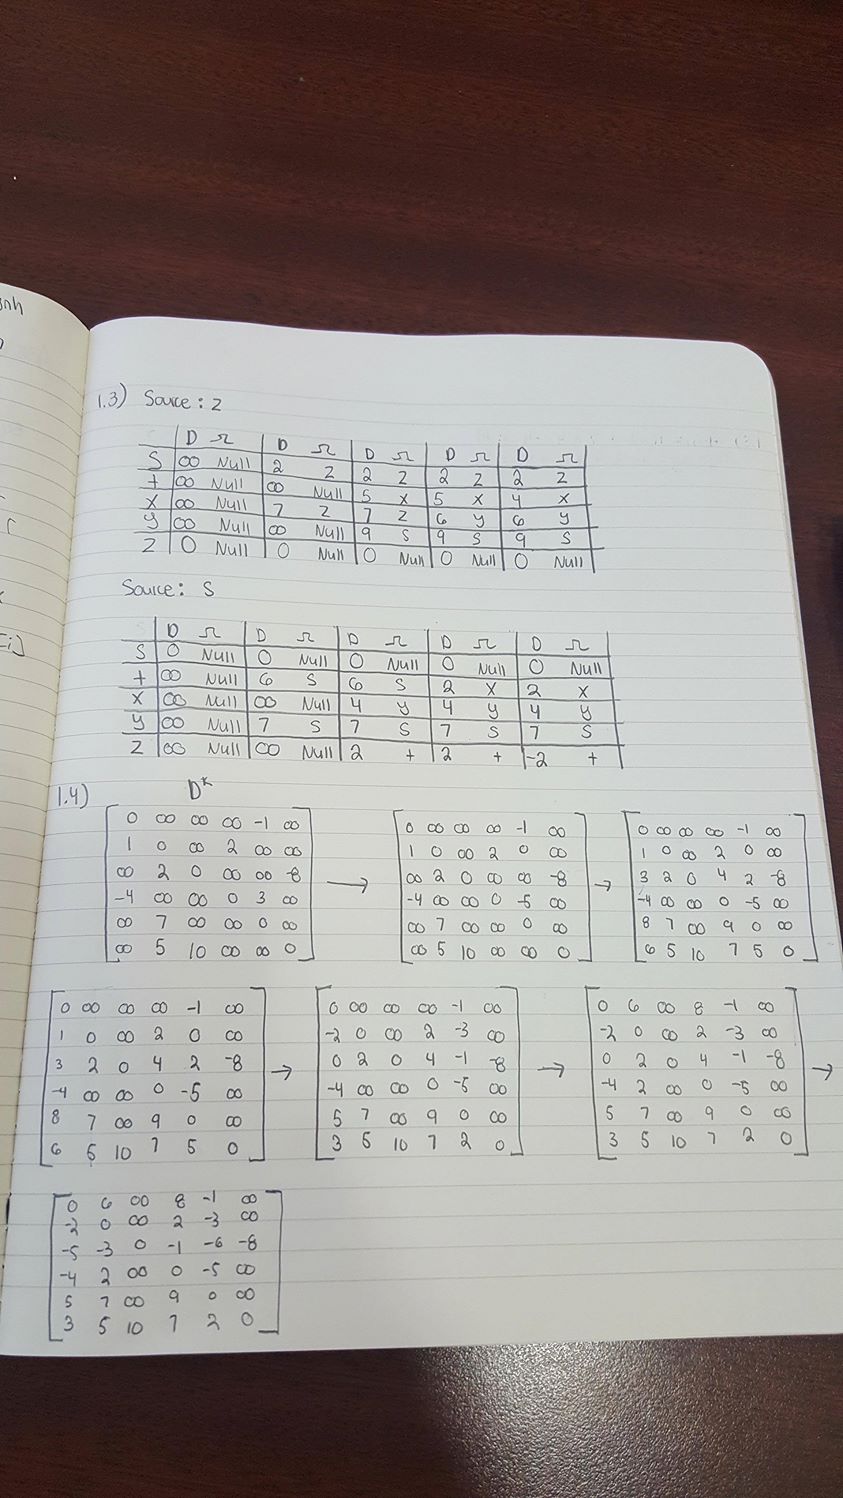 1.3) Source: z
D Ω D Ω D Ω D Ω D Ω
S ∞ Null 2 Z 2 Z 2 Z 2 Z
+ ∞ Null ∞ Null 5 X 5 X 4 X
X ∞ Null 7 Z 7 Z 6 y 6 y
y ∞ Null ∞ Null 9 S 9 S 9 S
Z 0 Null 0 Null 0 Null 0 Null 0 Null
Source: S
D Ω D Ω D Ω D Ω D Ω
S 0 Null 0 Null 0 Null 0 Null 0 Null
+ ∞ Null 6 S 6 S 2 X 2 X
X ∞ Null ∞ Null 4 y 4 y 4 y
y ∞ Null 7 S 7 S 7 S 7 S
Z ∞ Null ∞ Null 2 + 2 + -2 +
1.4) Dᵏ
0 ∞ ∞ ∞ -1 ∞
1 0 ∞ 2 ∞ ∞
∞ 2 0 ∞ ∞ -8
-4 ∞ ∞ 0 3 ∞
∞ 7 ∞ ∞ 0 ∞
∞ 5 10 ∞ ∞ 0
→
0 ∞ ∞ ∞ -1 ∞
1 0 ∞ 2 0 ∞
∞ 2 0 ∞ ∞ -8
-4 ∞ ∞ 0 -5 ∞
∞ 7 ∞ ∞ 0 ∞
∞ 5 10 ∞ ∞ 0
→
0 ∞ ∞ ∞ -1 ∞
1 0 ∞ 2 0 ∞
3 2 0 4 2 -8
-4 ∞ ∞ 0 -5 ∞
8 7 ∞ 9 0 ∞
6 5 10 7 5 0
0 ∞ ∞ ∞ -1 ∞
1 0 ∞ 2 0 ∞
3 2 0 4 2 -8
-4 ∞ ∞ 0 -5 ∞
8 7 ∞ 9 0 ∞
6 5 10 7 5 0
→
0 ∞ ∞ ∞ -1 ∞
-2 0 ∞ 2 -3 ∞
0 2 0 4 -1 -8
-4 ∞ ∞ 0 -5 ∞
5 7 ∞ 9 0 ∞
3 5 10 7 2 0
→
0 6 ∞ 8 -1 ∞
-2 0 ∞ 2 -3 ∞
0 2 0 4 -1 -8
-4 2 ∞ 0 -5 ∞
5 7 ∞ 9 0 ∞
3 5 10 7 2 0
→
0 6 ∞ 8 -1 ∞
-2 0 ∞ 2 -3 ∞
-5 -3 0 -1 -6 -8
-4 2 ∞ 0 -5 ∞
5 7 ∞ 9 0 ∞
3 5 10 7 2 0